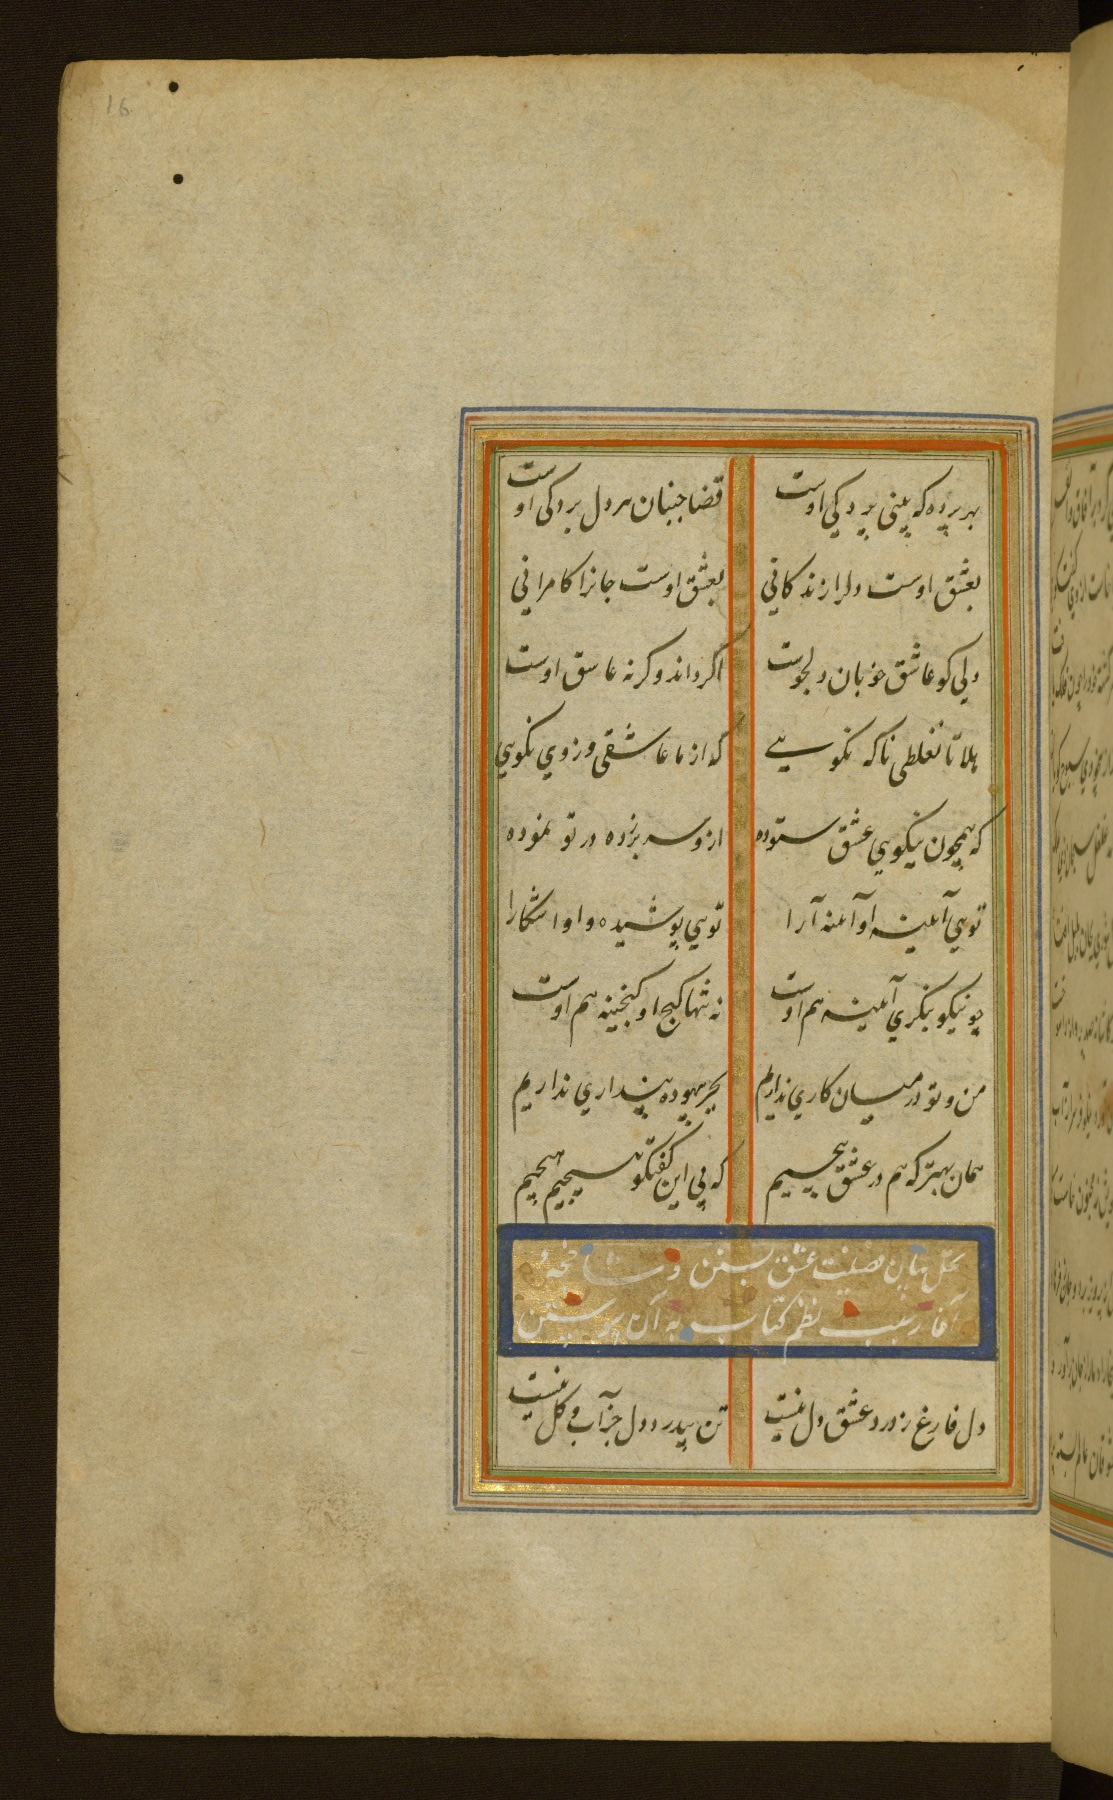 16
بهر پرده که بینی پردگی اوست قضا جنبان هر دل بردگی اوست
بعشق اوست دلرا زندکانی بعشق اوست جانرا کامرانی
دلی کو عاشق خوبان دلجوست اگر داند وگرنه عاسق اوست
هلا تا نغلطی ناکه نکویی که از ما عاشقی وز وی نکویی
که همچون نیکویی عشق ستوده ازو سر بر زده در تو نموده
تویی آیینه او آینه آرا تویی پوشیده و او اشکارا
چو نیکو بنکری آیینه هم اوست نه تنها کنج او کنجینه هم اوست
من و تو در میان کاری نداریم بجز بیهوده پنداری نداریم
همان بهتر که هم در عشق پیچیم که بی این کفتکو هیچیم هیچیم
فضیلت عشق بستن و شاخچه
آغاز سبب نظم کتاب به آن پیوستن
دل فارغ ز درد عشق دل نیست تن بیدرد دل جز آب و کل نیست